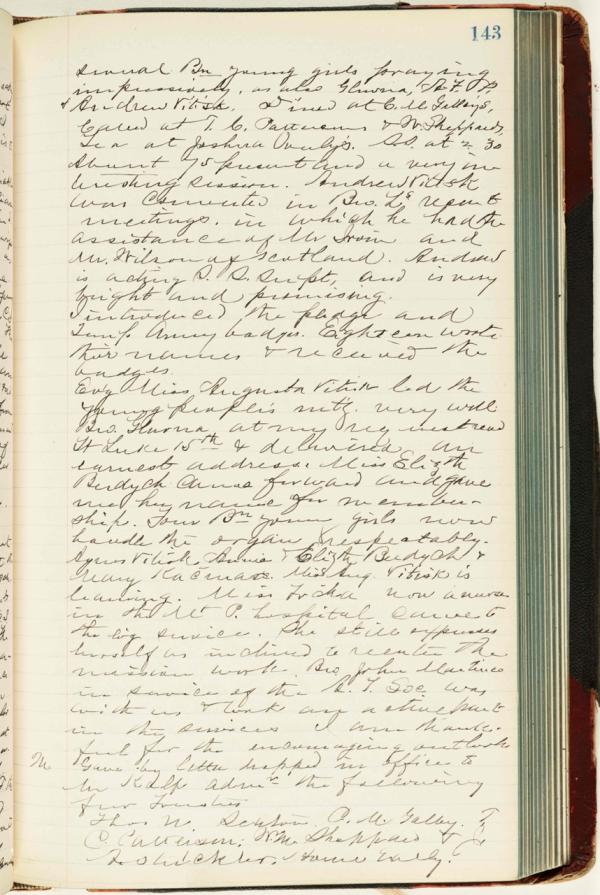 143
several Bm young girls praying
impressively, as also Glowna, & A. F. P.
& Andrew Vitisk. Dined at C. M. Galley's,
Called at T. C. Patterson's & W. Sheppard's,
Tea at Joshua S.S. at 2 30
About 75 present and a very in
teresting session. Andrew Vitisk
was converted in Bro. recent
meetings, in which he had the
assistance of Mr Irvin and
Mr. Wilson of Scotland. Andrew
is acting S. S. Supt, and is very
bright and promising.
I introduced the pledge and
Temp Army badges. Eighteen wrote
their names & received the
badges.
Evg Miss Augusta Vitisk led the
young people's mtg. very well
Bro. at my request read
St Luke 15th & delivered an
earnest address. Miss Elizth
Budych came forward and gave
me her name for member-
ship. Four Bm young girls now
handle the organ respectably.
Agnes Vitisk, Annie & Elizth Budych &
Mary Miss Aug. Vitisk is
learning. Miss now a nurse
in the Mt P. hospital came to
the evg service. She still expresses
herself as inclined to reenter the
mission work. Bro. John Martinco
in service of the A. T. Soc. was
with us & took an active part
in the services I am thank-
ful for the encouraging outlook
M Gave by letter dropped in office to
Mr the following
four Trustees
Thos W. C. M. Galley. T.
C. Patterson, Wm Sheppard &